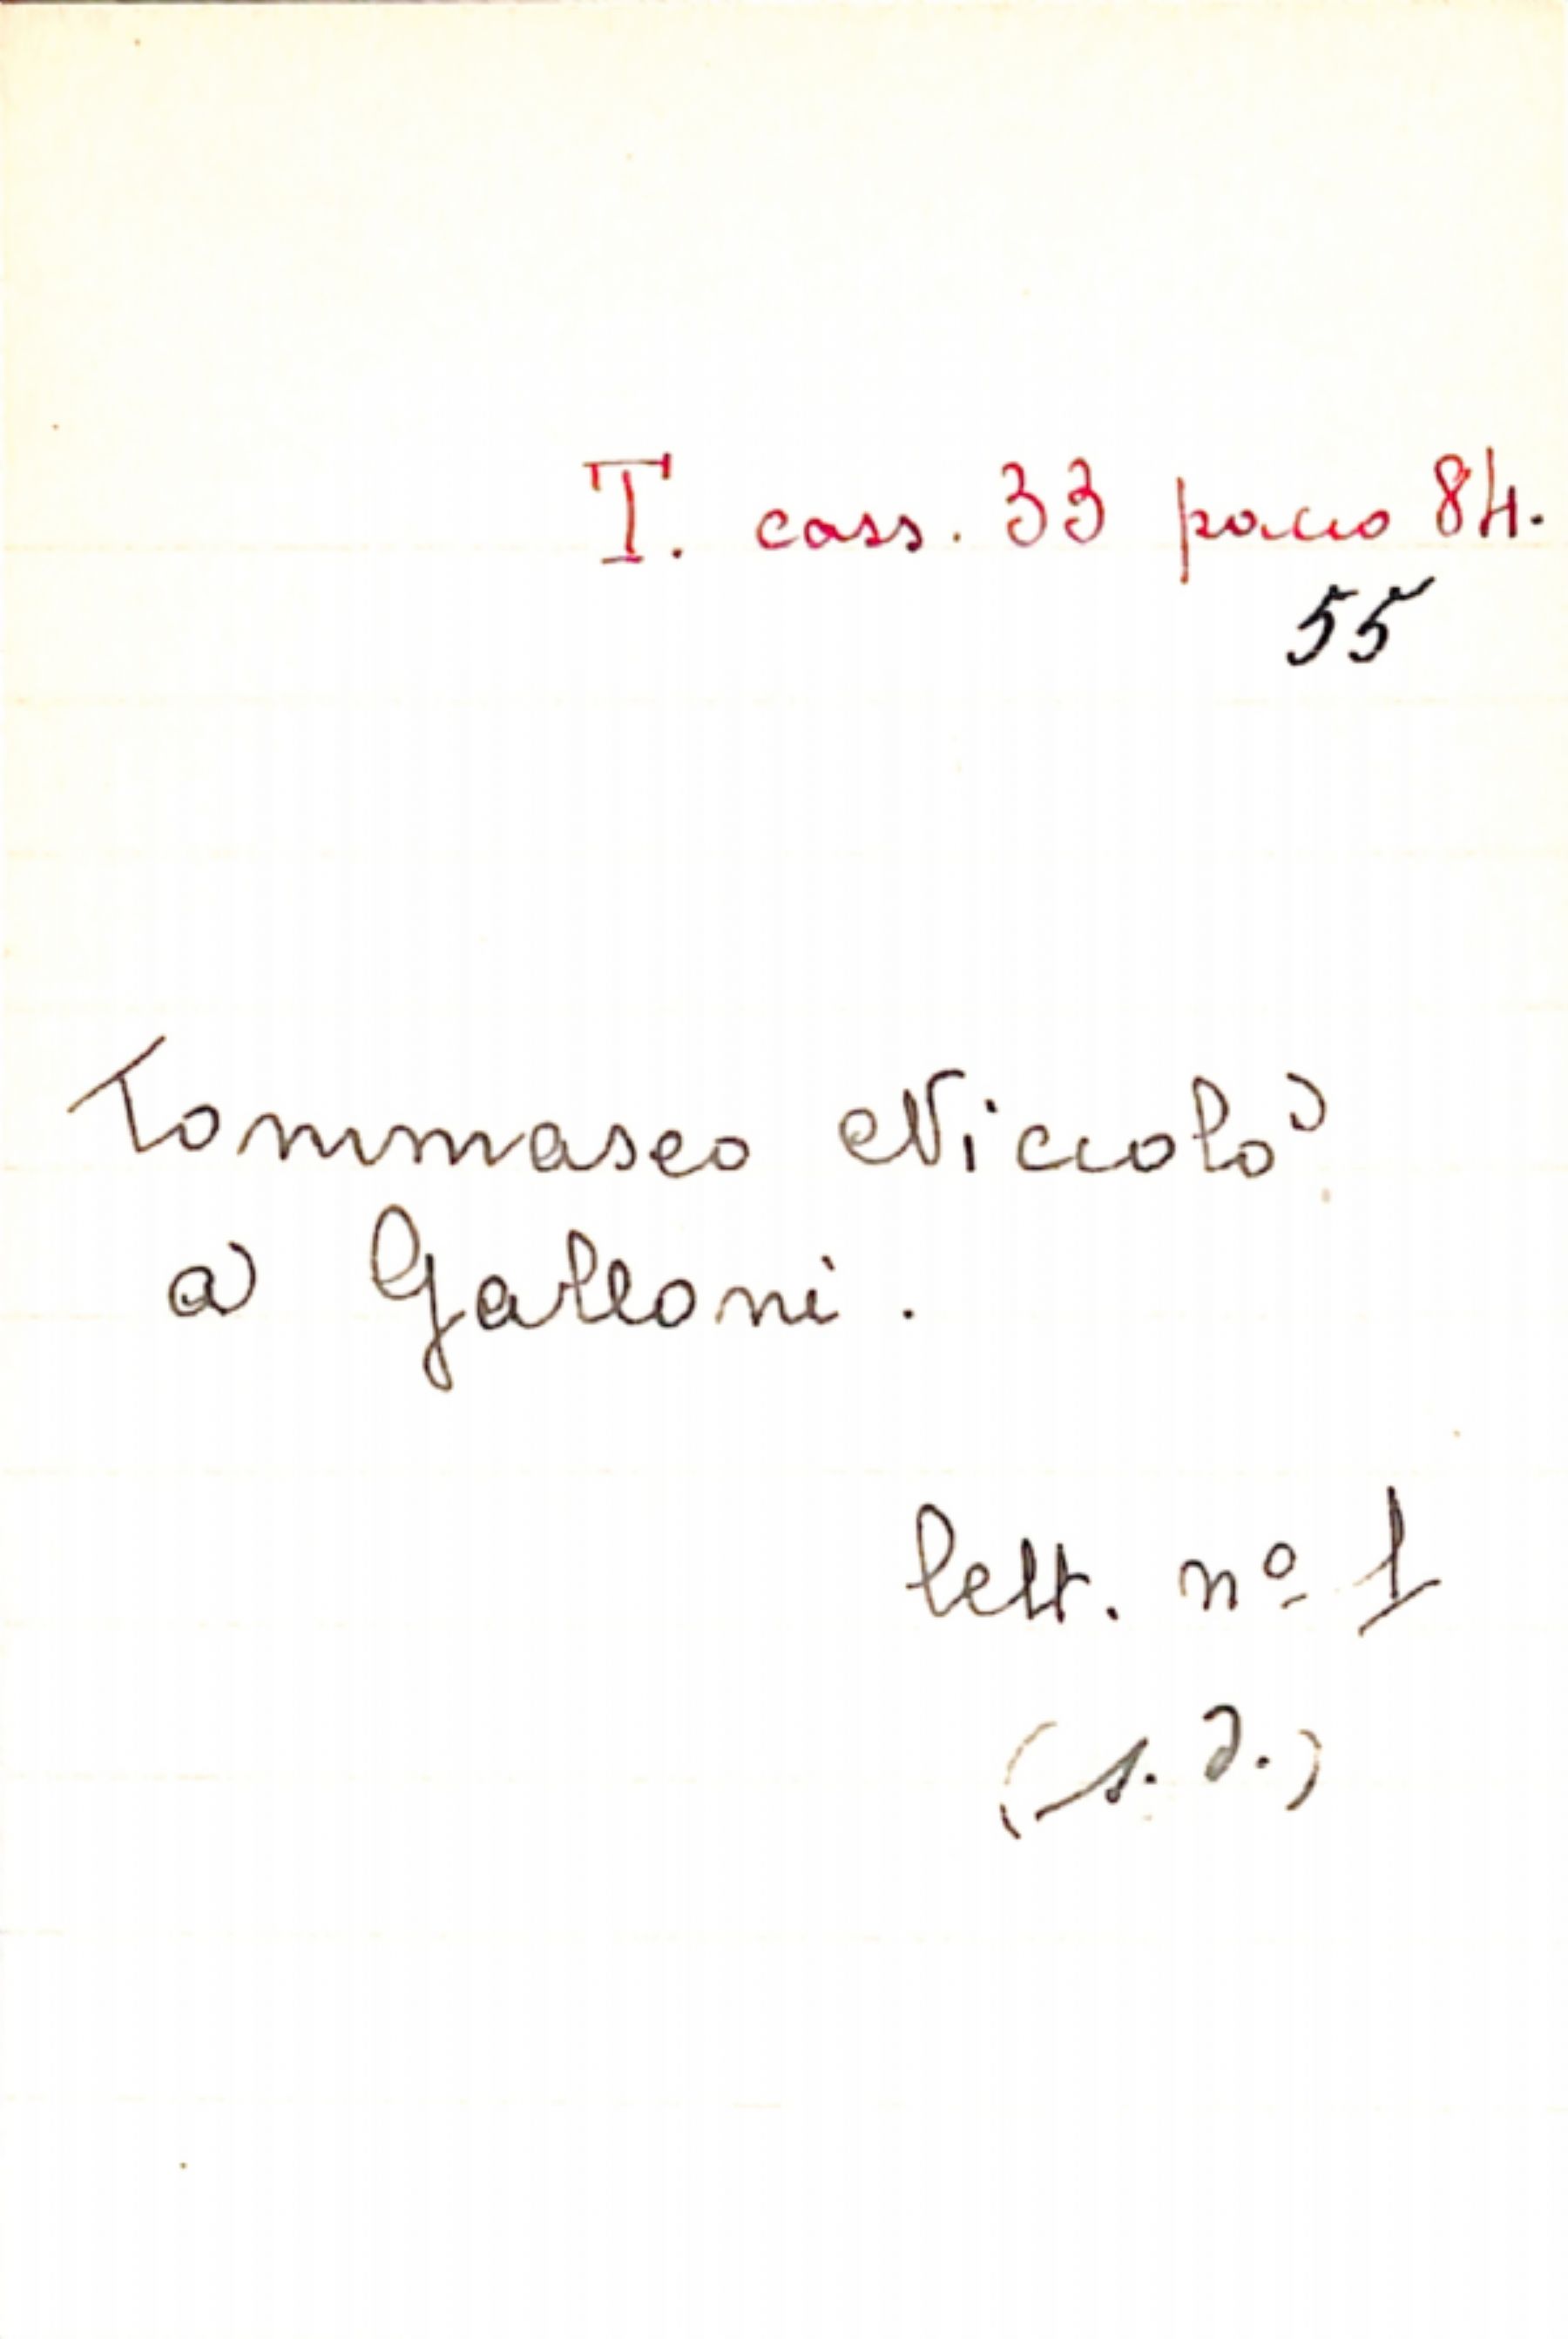 T. cass. 33 pacco 84.
55
Tommaseo Niccolò
a Galloni.
lett. nº 1
(s. d.)